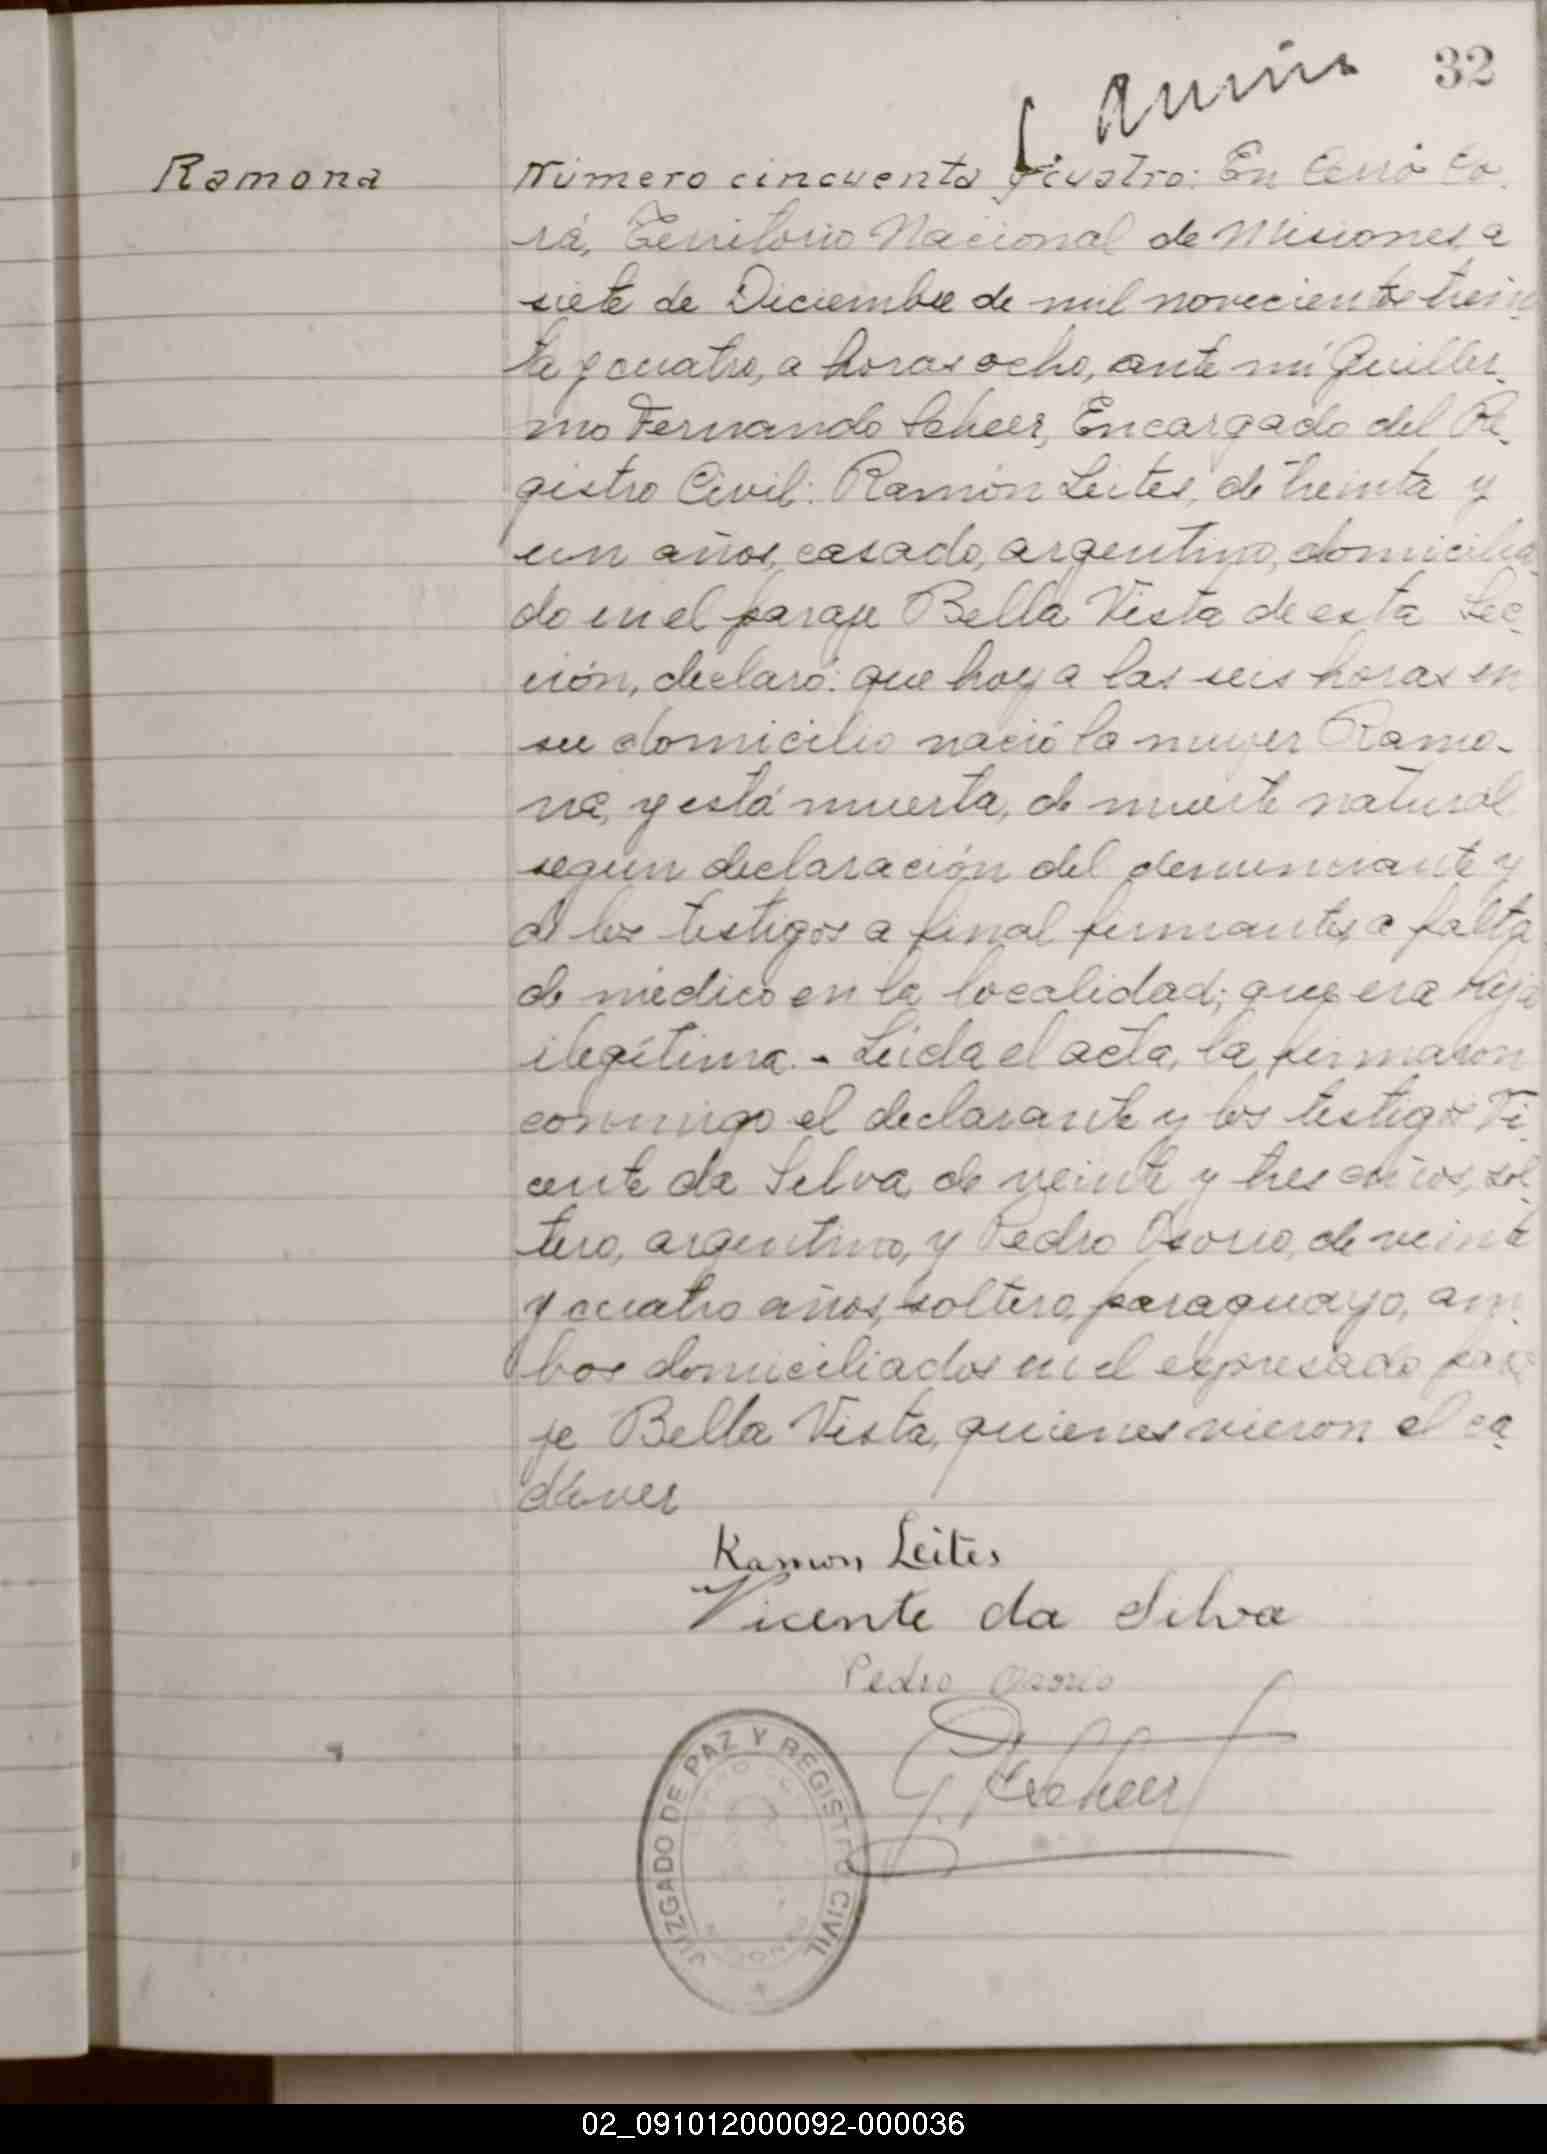 32
Ramona
Número cincuenta y cuatro: En Cerro Co-
rá, Territorio Nacional de Misiones, a
siete de Diciembre de mil novecientos trein-
ta y cuatro, a horas ocho, ante mí Guiller-
mo Fernando Scheer, Encargado del Re-
gistro Civil: Ramón Leites, de treinta y
un años, casado, argentino, domicilia-
do en el paraje Bella Vista de esta Sec-
ción, declaró: que hoy a las seis horas en
su domicilio nació la mujer Ramo-
na, y está muerta, de muerte natural
segun declaración del denunciante y
de los testigos a final firmantes, a falta
de médico en la localidad; que era hija
ilegítima. - Leida el acta, la firmaron
conmigo el declarante y los testigos Vi-
cente da Silva, de veinte y tres años, sol-
tero, argentino, y Pedro Osorio, de veinte
y cuatro años, soltero, paraguayo, am-
bos domiciliados en el expresado para-
je Bella Vista, quienes vieron el ca-
dáver
Ramon Leites
Vicente da Silva
Pedro Osorio
G. F. Scheer
JUZGADO DE PAZ Y REGISTRO CIVIL
02_091012000092-000036